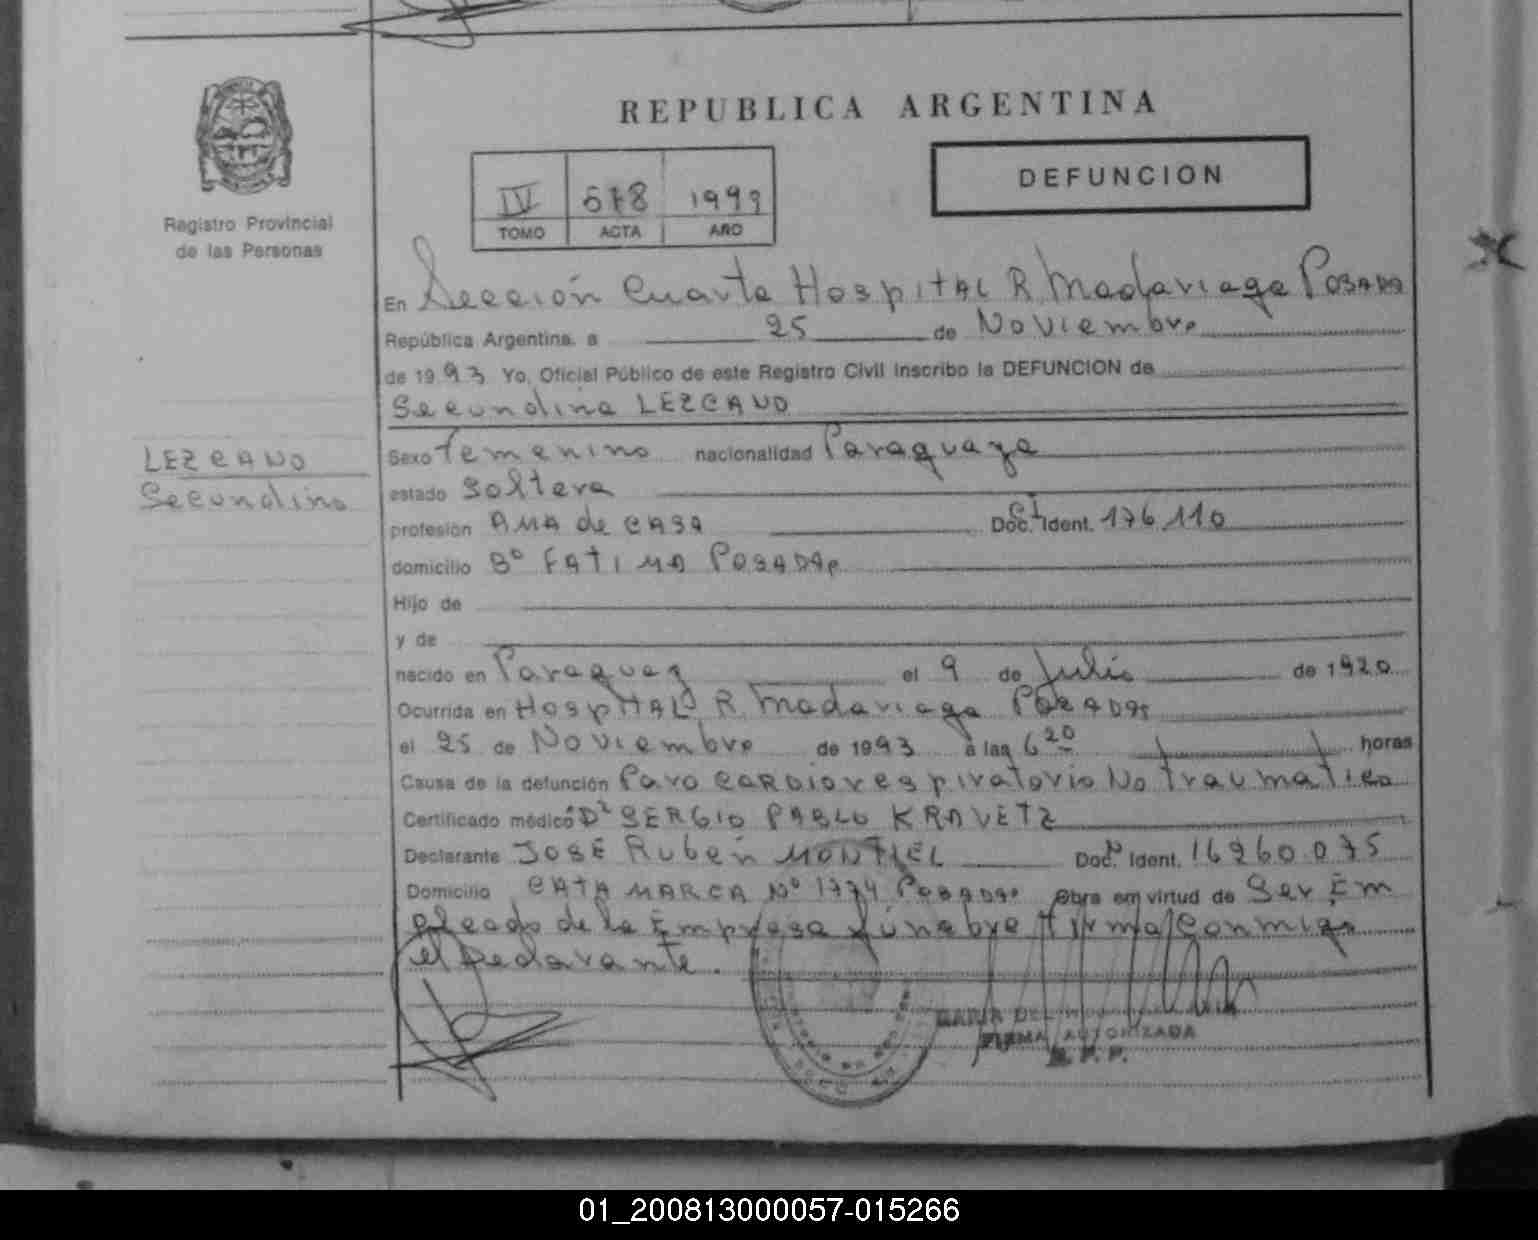 REPUBLICA ARGENTINA
DEFUNCION
IV 578 1993
TOMO ACTA AÑO
Registro Provincial
de las Personas
En Sección Cuarta Hospital R. Madariaga Posadas
República Argentina, a 25 de Noviembre
de 1993 Yo, Oficial Público de este Registro Civil inscribo la DEFUNCION de
Secundina LEZCANO
LEZCANO
Secundina
Sexo Femenino nacionalidad Paraguaya
estado Soltera
profesión AMA de CASA Doc. Ident. C.I. 176.110
domicilio Bº FATIMA POSADAS
Hijo de
y de
nacido en Paraguay el 9 de Julio de 1920
Ocurrida en HospITAL R. Madariaga POSADAS
el 25 de Noviembre de 1993 a las 6 20 horas
Causa de la defunción Paro CARDiorespiratorio No Traumatico
Certificado médico Dr SERGIO PABLO KRAVETZ
Declarante JOSÉ Rubén MONTIEL Doc. Ident. 16260.075
Domicilio CATAMARCA Nº 1774 POSADAS Obra en virtud de Ser Em
pleado de la Empresa fúnebre firma conmigo
el Declarante.
MARIA DEL
FIRMA AUTORIZADA
R. P. P.
01_200813000057-015266